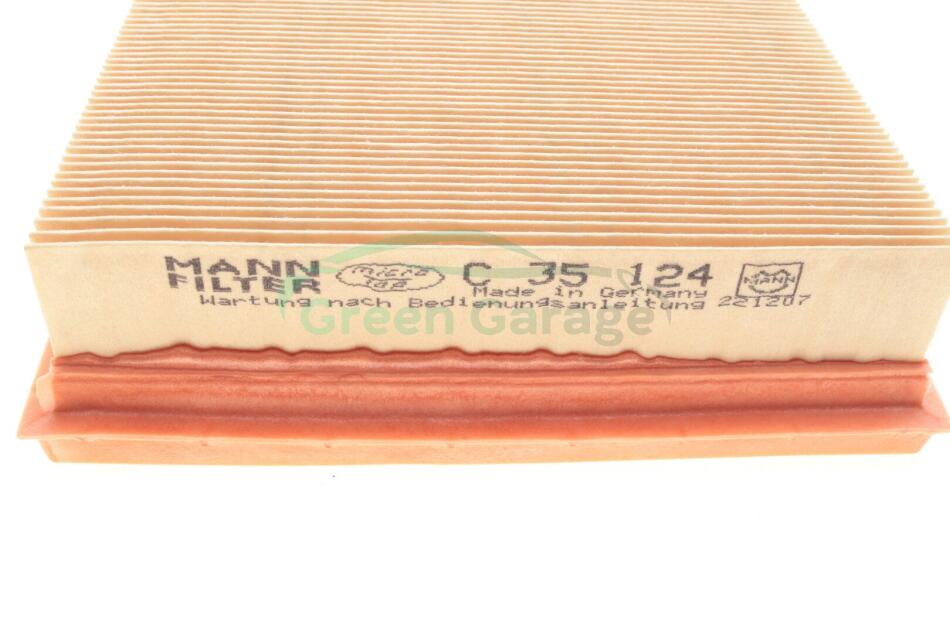 MANN
FILTER
micro
TOP
C 35 124
MANN
Made in Germany
Wartung nach Bedienungsanleitung 221207
Green Garage